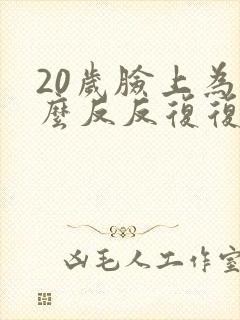 20歲臉上為
麼反反復復
凶毛人工作室